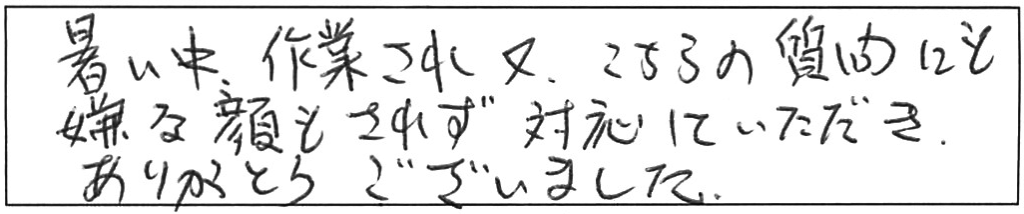 暑い中、作業され又、こちらの質問にも
嫌な顔もされず対応していただき、
ありがとうございました。